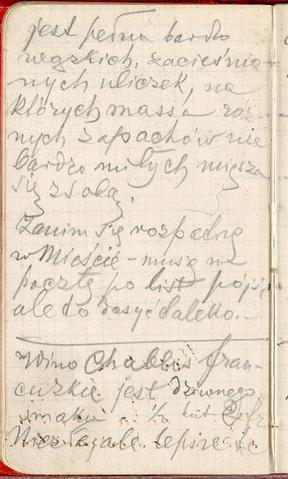 jest pełna bardo
wązkich, zacieśnio-
nych uliczek, na
których massa róż-
nych zapachów nie
bardzo miłych miesza
się z sobą.
Zanim się rozpadnę
w Mieście - muszę na
pocztę po list pójść
ale to dosyć daleko.-
Wino Chablis fran-
cuzkie jest dziwnego
smaku. ½ lit
Niezłe, ale lepsze